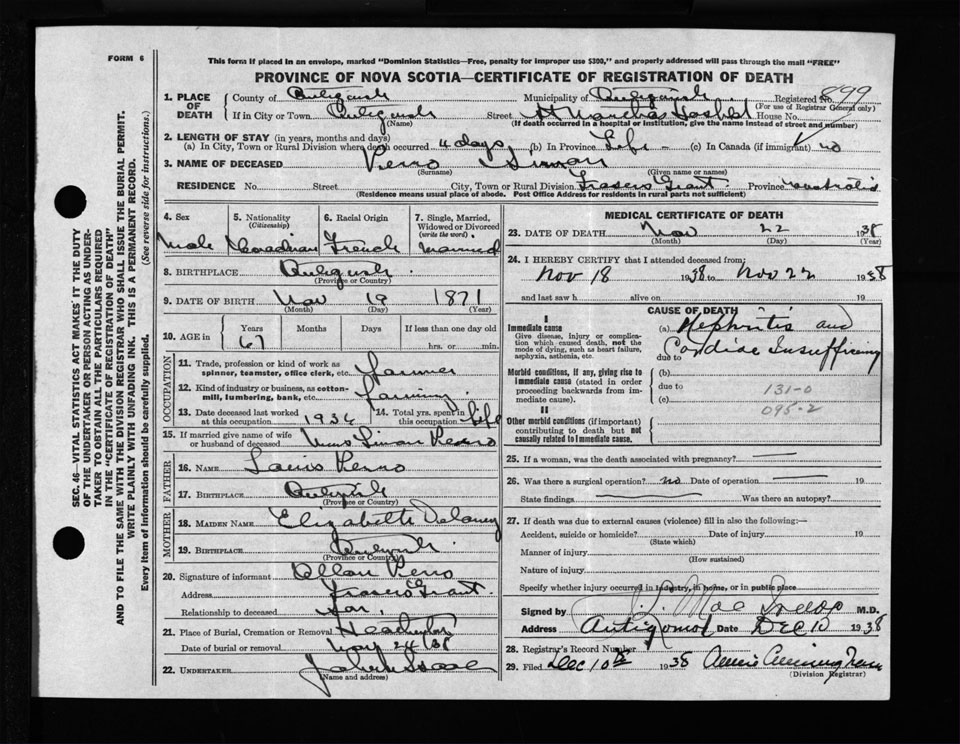 FORM 6
This form if placed in an envelope, marked "Dominion Statistics—Free, penalty for improper use $300," and properly addressed will pass through the mail "FREE"
PROVINCE OF NOVA SCOTIA—CERTIFICATE OF REGISTRATION OF DEATH
1. PLACE OF DEATH County of Antigonish Municipality of Antigonish Registered No. 899
(For use of Registrar General only)
If in City or Town Antigonish Street St Marthas Hospital House No.
(Name) (If death occurred in a hospital or institution, give the name instead of street and number)
2. LENGTH OF STAY (in years, months and days)
(a) In City, Town or Rural Division where death occurred 4 days (b) In Province Life (c) In Canada (if immigrant) no
3. NAME OF DECEASED Perro Simon
(Surname) (Given name or names)
RESIDENCE No. Street City, Town or Rural Division Frasers Grant Province
(Residence means usual place of abode. Post Office Address for residents in rural parts not sufficient)
4. Sex Male
5. Nationality (Citizenship) Canadian
6. Racial Origin French
7. Single, Married, Widowed or Divorced (write the word) Married
8. BIRTHPLACE Antigonish
(Province or Country)
9. DATE OF BIRTH Nov 19 1871
(Month) (Day) (Year)
10. AGE in Years 67 Months Days If less than one day hrs. or min.
OCCUPATION
11. Trade, profession or kind of work as spinner, teamster, office clerk, etc. Farmer
12. Kind of industry or business, as cotton-mill, lumbering, bank, etc. Farming
13. Date deceased last worked at this occupation 1936 14. Total yrs. spent in this occupation Life
15. If married give name of wife or husband of deceased Mrs Simon Perro
FATHER
16. NAME Louis Perro
17. BIRTHPLACE Antigonish
(Province or Country)
MOTHER
18. MAIDEN NAME Elizabeth Delaney
19. BIRTHPLACE Antigonish
(Province or Country)
20. Signature of informant Allan Perro
Address Frasers Grant
Relationship to deceased Son
21. Place of Burial, Cremation or Removal Heatherton
Date of burial or removal Nov 24/38
22. UNDERTAKER
(Name and address)
MEDICAL CERTIFICATE OF DEATH
23. DATE OF DEATH Nov 22 1938
(Month) (Day) (Year)
24. I HEREBY CERTIFY that I attended deceased from:
Nov 18 1938 to Nov 22 1938
and last saw h alive on 19
CAUSE OF DEATH
I
Immediate cause (a) Nephritis and
Give disease, injury or complication which caused death, not the mode of dying, such as heart failure, asphyxia, asthenia, etc.
due to Cardiac Insufficiency
Morbid conditions, if any, giving rise to immediate cause (stated in order proceeding backwards from immediate cause).
(b)
due to 131-0
(c) 095-2
II
Other morbid conditions (if important) contributing to death but not causally related to immediate cause.
25. If a woman, was the death associated with pregnancy?
26. Was there a surgical operation? no Date of operation 19
State findings Was there an autopsy?
27. If death was due to external causes (violence) fill in also the following:—
Accident, suicide or homicide? Date of injury 19
(State which)
Manner of injury
(How sustained)
Nature of injury
Specify whether injury occurred in industry, in home, or in public place
Signed by M.D.
Address Antigonish Date Dec 10 1938
28. Registrar's Record Number
29. Filed Dec 10th 1938 Annie
(Division Registrar)
SEC. 46—VITAL STATISTICS ACT MAKES IT THE DUTY
OF THE UNDERTAKER OR PERSON ACTING AS UNDER-
TAKER TO OBTAIN ALL THE PARTICULARS REQUIRED
IN THE "CERTIFICATE OF REGISTRATION OF DEATH"
AND TO FILE THE SAME WITH THE DIVISION REGISTRAR WHO SHALL ISSUE THE BURIAL PERMIT.
WRITE PLAINLY WITH UNFADING INK. THIS IS A PERMANENT RECORD.
Every item of information should be carefully supplied. (See reverse side for instructions.)